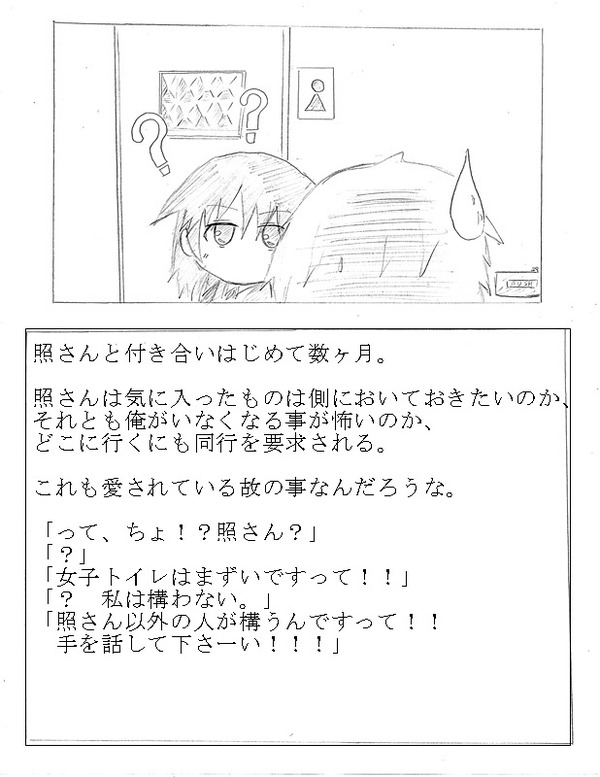 ？
？
PUSH
照さんと付き合いはじめて数ヶ月。
照さんは気に入ったものは側においておきたいのか、
それとも俺がいなくなる事が怖いのか、
どこに行くにも同行を要求される。
これも愛されている故の事なんだろうな。
「って、ちょ！？照さん？」
「？」
「女子トイレはまずいですって！！」
「？　私は構わない。」
「照さん以外の人が構うんですって！！
　手を話して下さーい！！！」